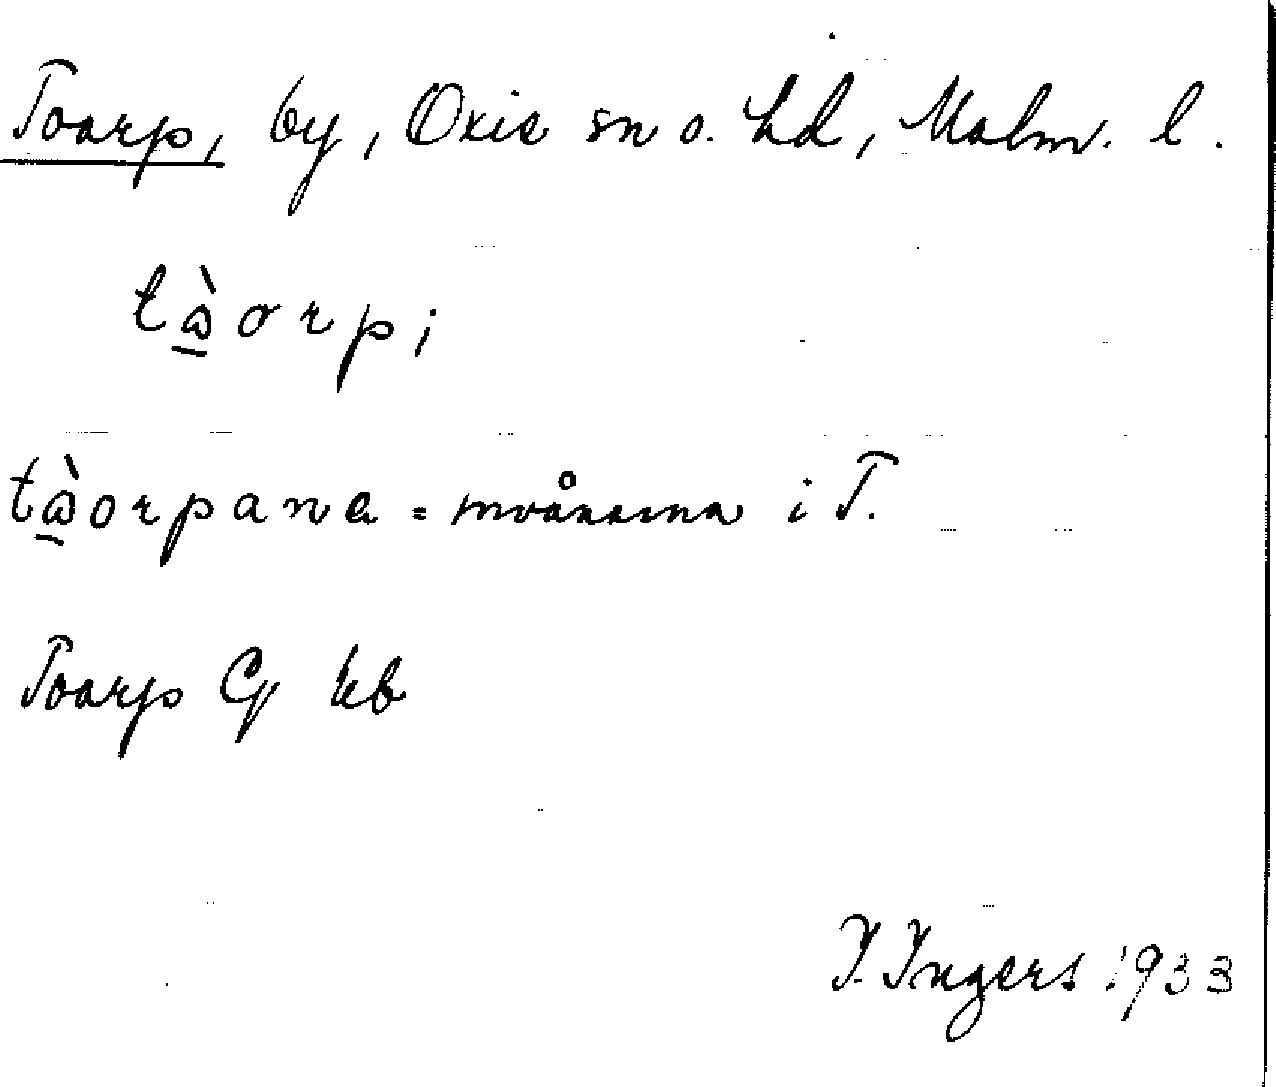 Toarp, by, Oxie sn o. hd, Malm. l.
tὼorp;
tὼorpana = invånarna i T.
Toarp Gj kb
I. Ingers 1933